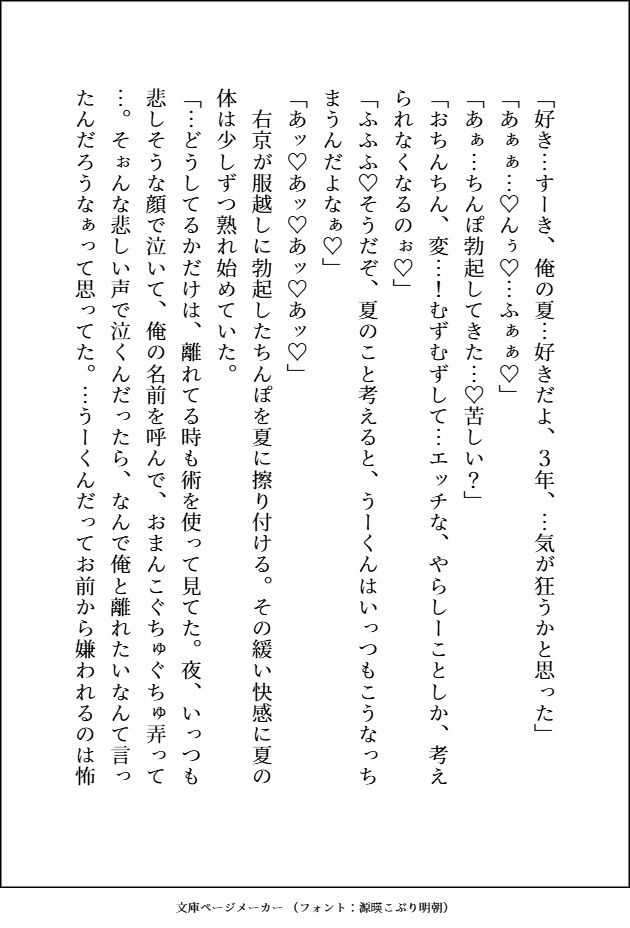 「好き…すーき、俺の夏…好きだよ、３年、…気が狂うかと思った」
「あぁぁ…♡んぅ♡…ふぁぁ♡」
「あぁ…ちんぽ勃起してきた…♡苦しい？」
「おちんちん、変…！むずむずして…エッチな、やらしーことしか、考え
られなくなるのぉ♡」
「ふふふ♡そうだぞ、夏のこと考えると、うーくんはいっつもこうなっち
まうんだよなぁ♡」
「あッ♡あッ♡あッ♡あッ♡」
　右京が服越しに勃起したちんぽを夏に擦り付ける。その緩い快感に夏の
体は少しずつ熟れ始めていた。
「…どうしてるかだけは、離れてる時も術を使って見てた。夜、いっつも
悲しそうな顔で泣いて、俺の名前を呼んで、おまんこぐちゅぐちゅ弄って
…。そぉんな悲しい声で泣くんだったら、なんで俺と離れたいなんて言っ
たんだろうなぁって思ってた。…うーくんだってお前から嫌われるのは怖
文庫ページメーカー（フォント：源暎こぶり明朝）